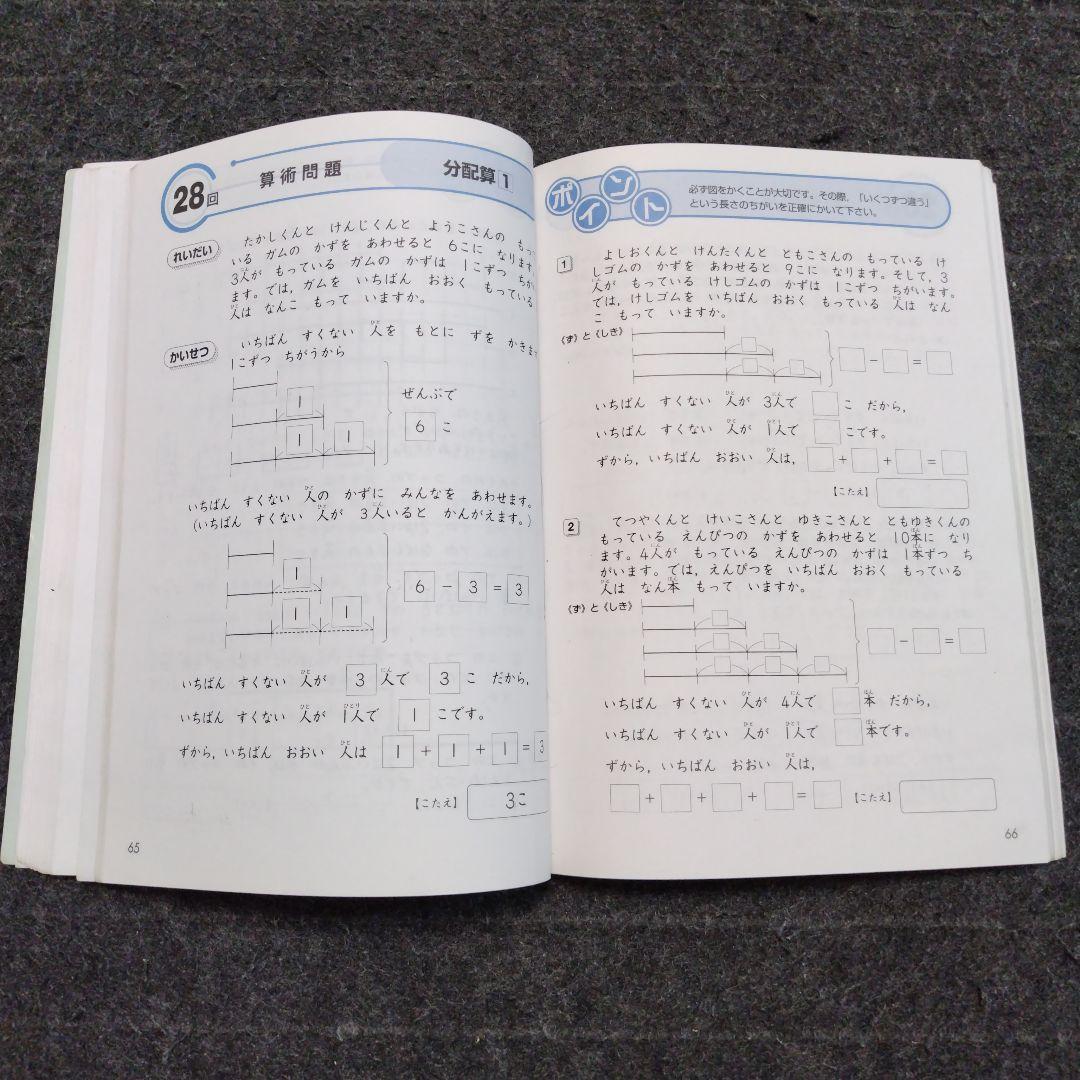 28回
算術問題
分配算1
れいだい
たかしくんと けんじくんと ようこさんの
いる ガムの かずを あわせると 6こに なります。
3人が もっている ガムの かずは 1こずつ
ます。では, ガムを いちばん おおく もっている
人は なんこ もって いますか。
かいせつ
いちばん すくない 人を もとに ずを かきます
1こずつ ちがうから
1
1 1
ぜんぶで
6 こ
いちばん すくない 人の かずに みんなを あわせます。
(いちばん すくない 人が 3人いると かんがえます。)
1
1 1
6 − 3 = 3
いちばん すくない 人が 3 人で 3 こ だから,
いちばん すくない 人が 1人で 1 こです。
ずから, いちばん おおい 人は 1 + 1 + 1 = 3
【こたえ】 3こ
65
ポイント
必ず図をかくことが大切です。その際,「いくつずつ違う」
という長さのちがいを正確にかいて下さい。
1
よしおくんと けんたくんと ともこさんの もっている け
しゴムの かずを あわせると 9こに なります。そして, 3
人が もっている けしゴムの かずは 1こずつ ちがいます。
では, けしゴムを いちばん おおく もっている 人は なん
こ もって いますか。
《ず》と《しき》
− =
いちばん すくない 人が 3人で こ だから,
いちばん すくない 人が 1人で こです。
ずから, いちばん おおい 人は, + + =
【こたえ】
2
てつやくんと けいこさんと ゆきこさんと ともゆきくんの
もっている えんぴつの かずを あわせると 10本に なり
ます。4人が もっている えんぴつの かずは 1本ずつ ち
がいます。では, えんぴつを いちばん おおく もっている
人は なん本 もって いますか。
《ず》と《しき》
− =
いちばん すくない 人が 4人で 本 だから,
いちばん すくない 人が 1人で 本です。
ずから, いちばん おおい 人は,
+ + + = 【こたえ】
66